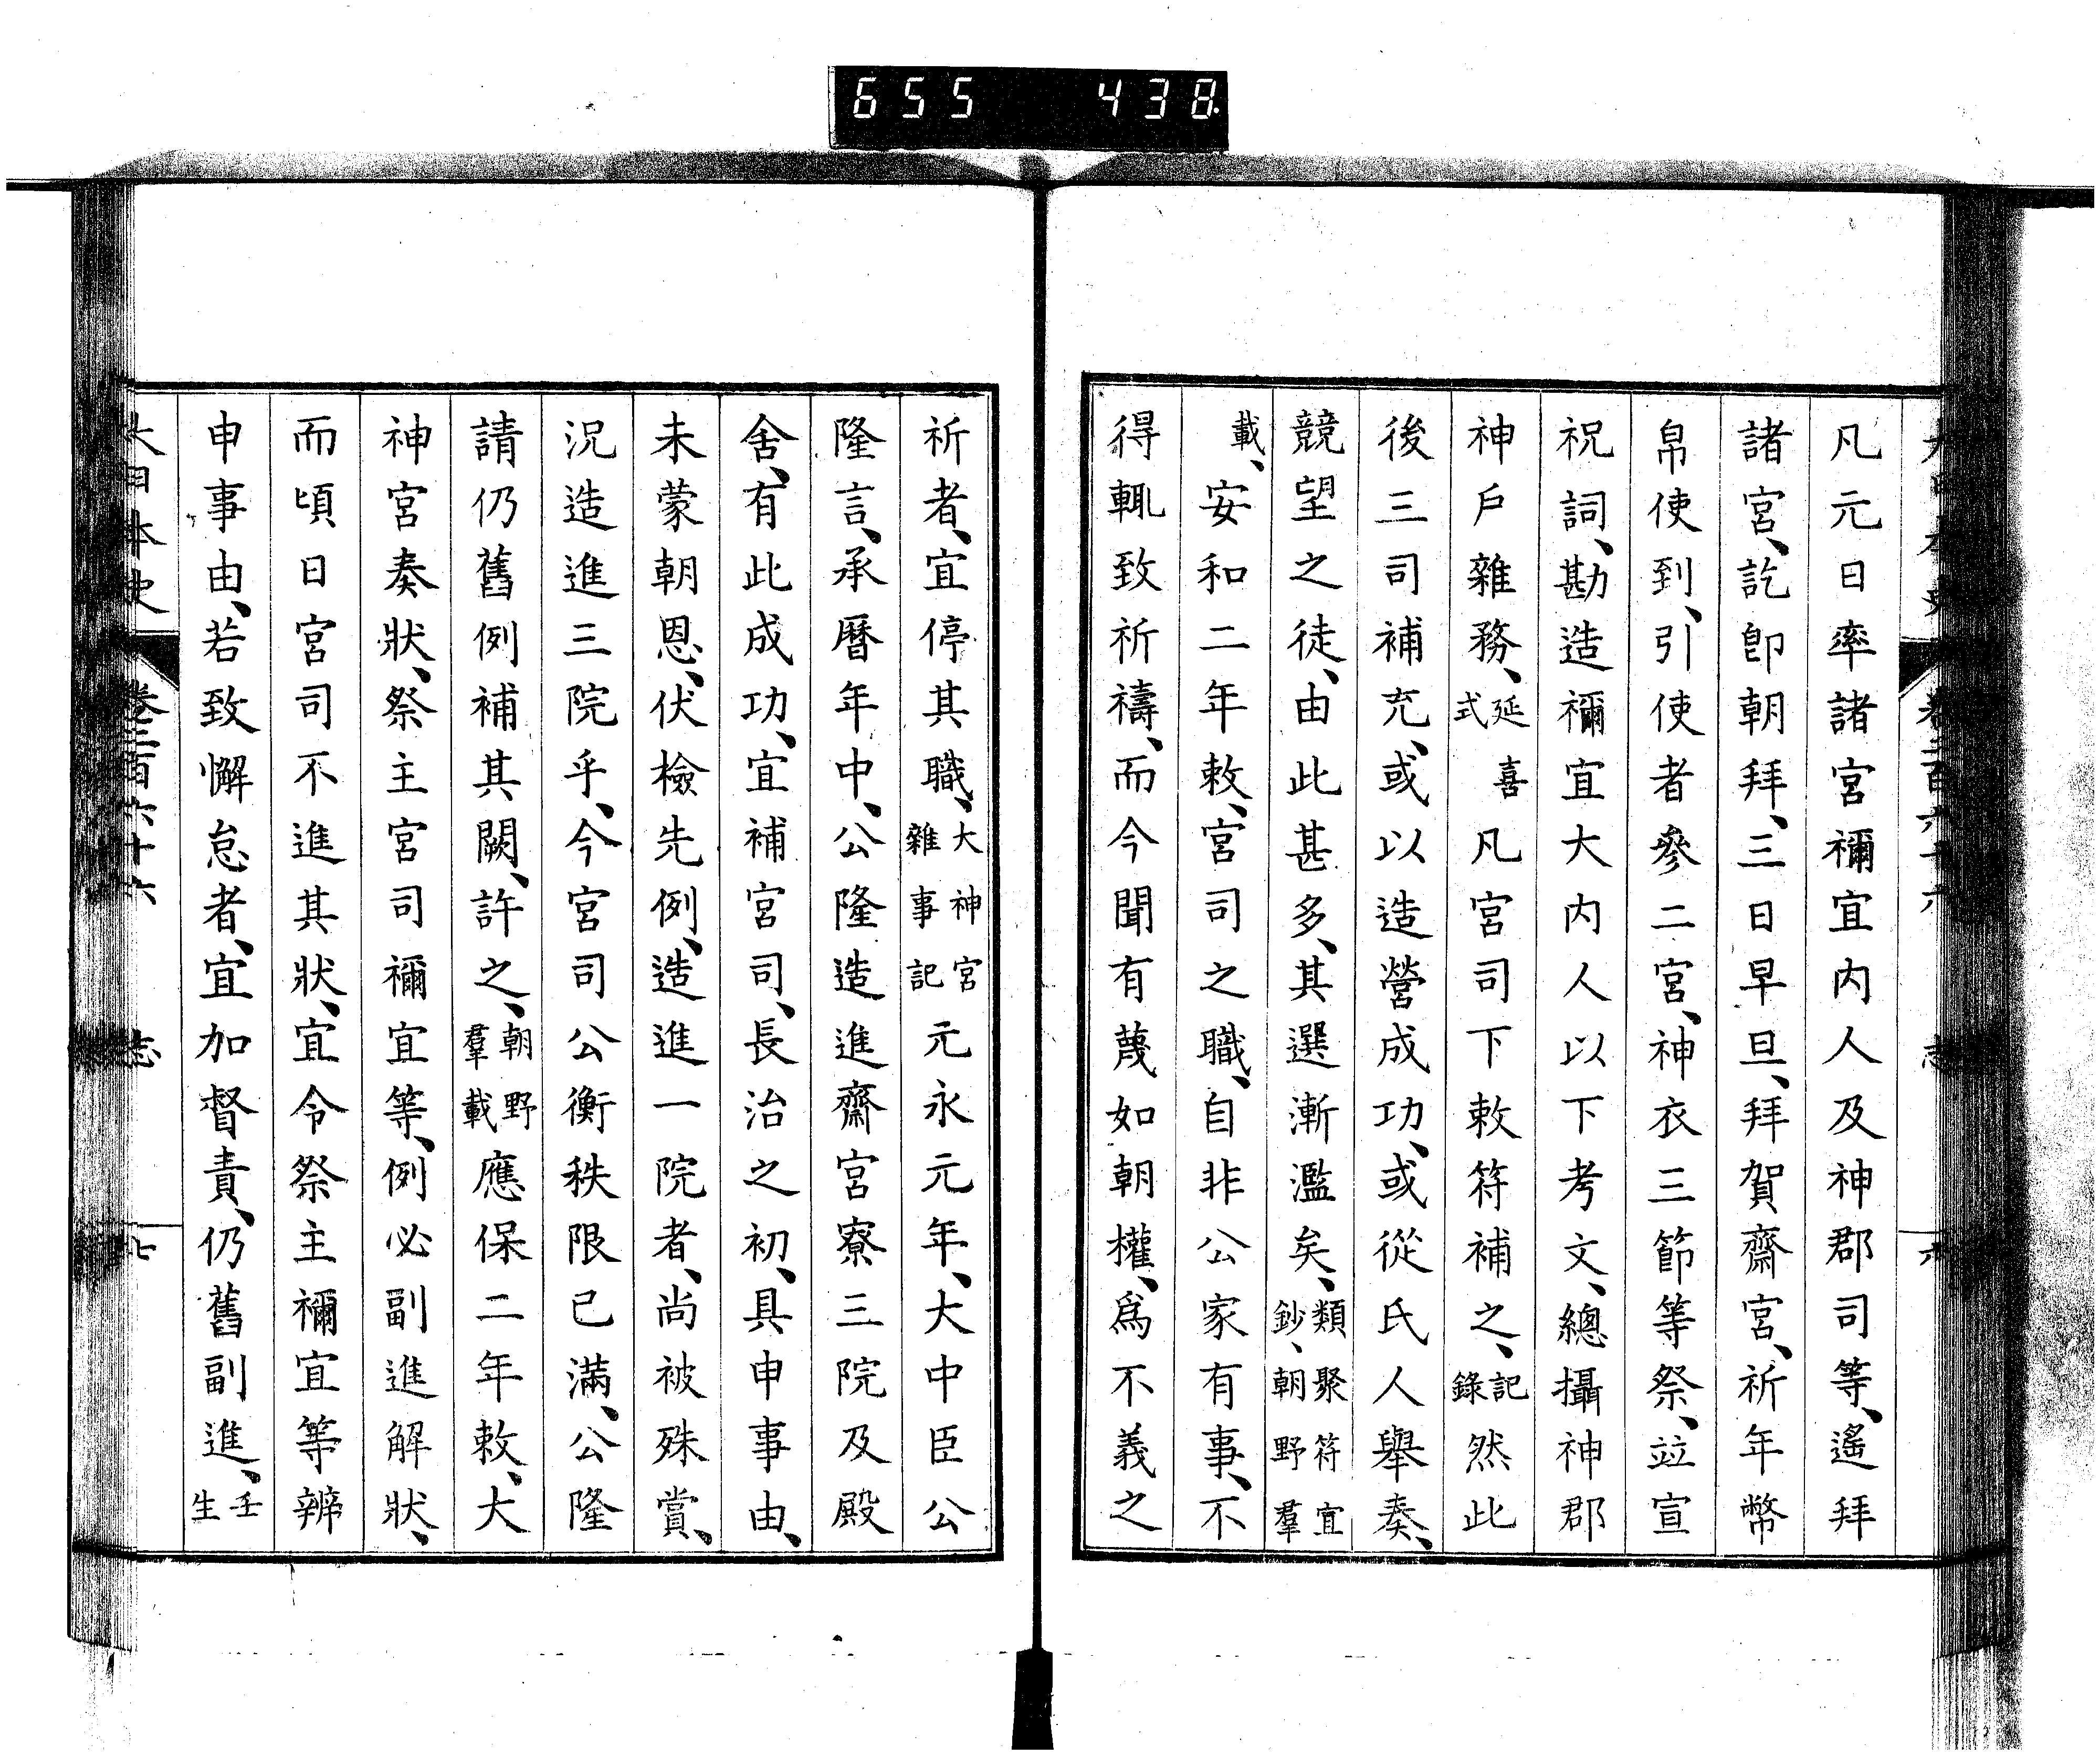 655 438
凡元日率諸宮禰宜内人及神郡司等、遙拜
諸宮、訖卽朝拜、三日早旦、拜賀齋宮、祈年幣
帛使到、引使者參二宮、神衣三節等祭、竝宣
祝詞、勘造禰宜大内人以下考文、總攝神郡
神戶雜務、延喜式凡宮司下敕符補之、記錄然此
後三司補充、或以造營成功、或從氏人舉奏、
競望之徒、由此甚多、其選漸濫矣、類聚符宣鈔、朝野羣
載、安和二年敕、宮司之職、自非公家有事、不
得輒致祈禱、而今聞有蔑如朝權、爲不義之
祈者、宜停其職、大神宮雜事記元永元年、大中臣公
隆言、承曆年中、公隆造進齋宮寮三院及殿
舍、有此成功、宜補宮司、長治之初、具申事由、
未蒙朝恩、伏檢先例、造進一院者、尚被殊賞、
況造進三院乎、今宮司公衡秩限已滿、公隆
請仍舊例補其闕、許之、朝野羣載應保二年敕、大
神宮奏狀、祭主宮司禰宜等、例必副進解狀、
而頃日宮司不進其狀、宜令祭主禰宜等辨
申事由、若致懈怠者、宜加督責、仍舊副進、壬生
大日本史 卷二百六十六 志 七